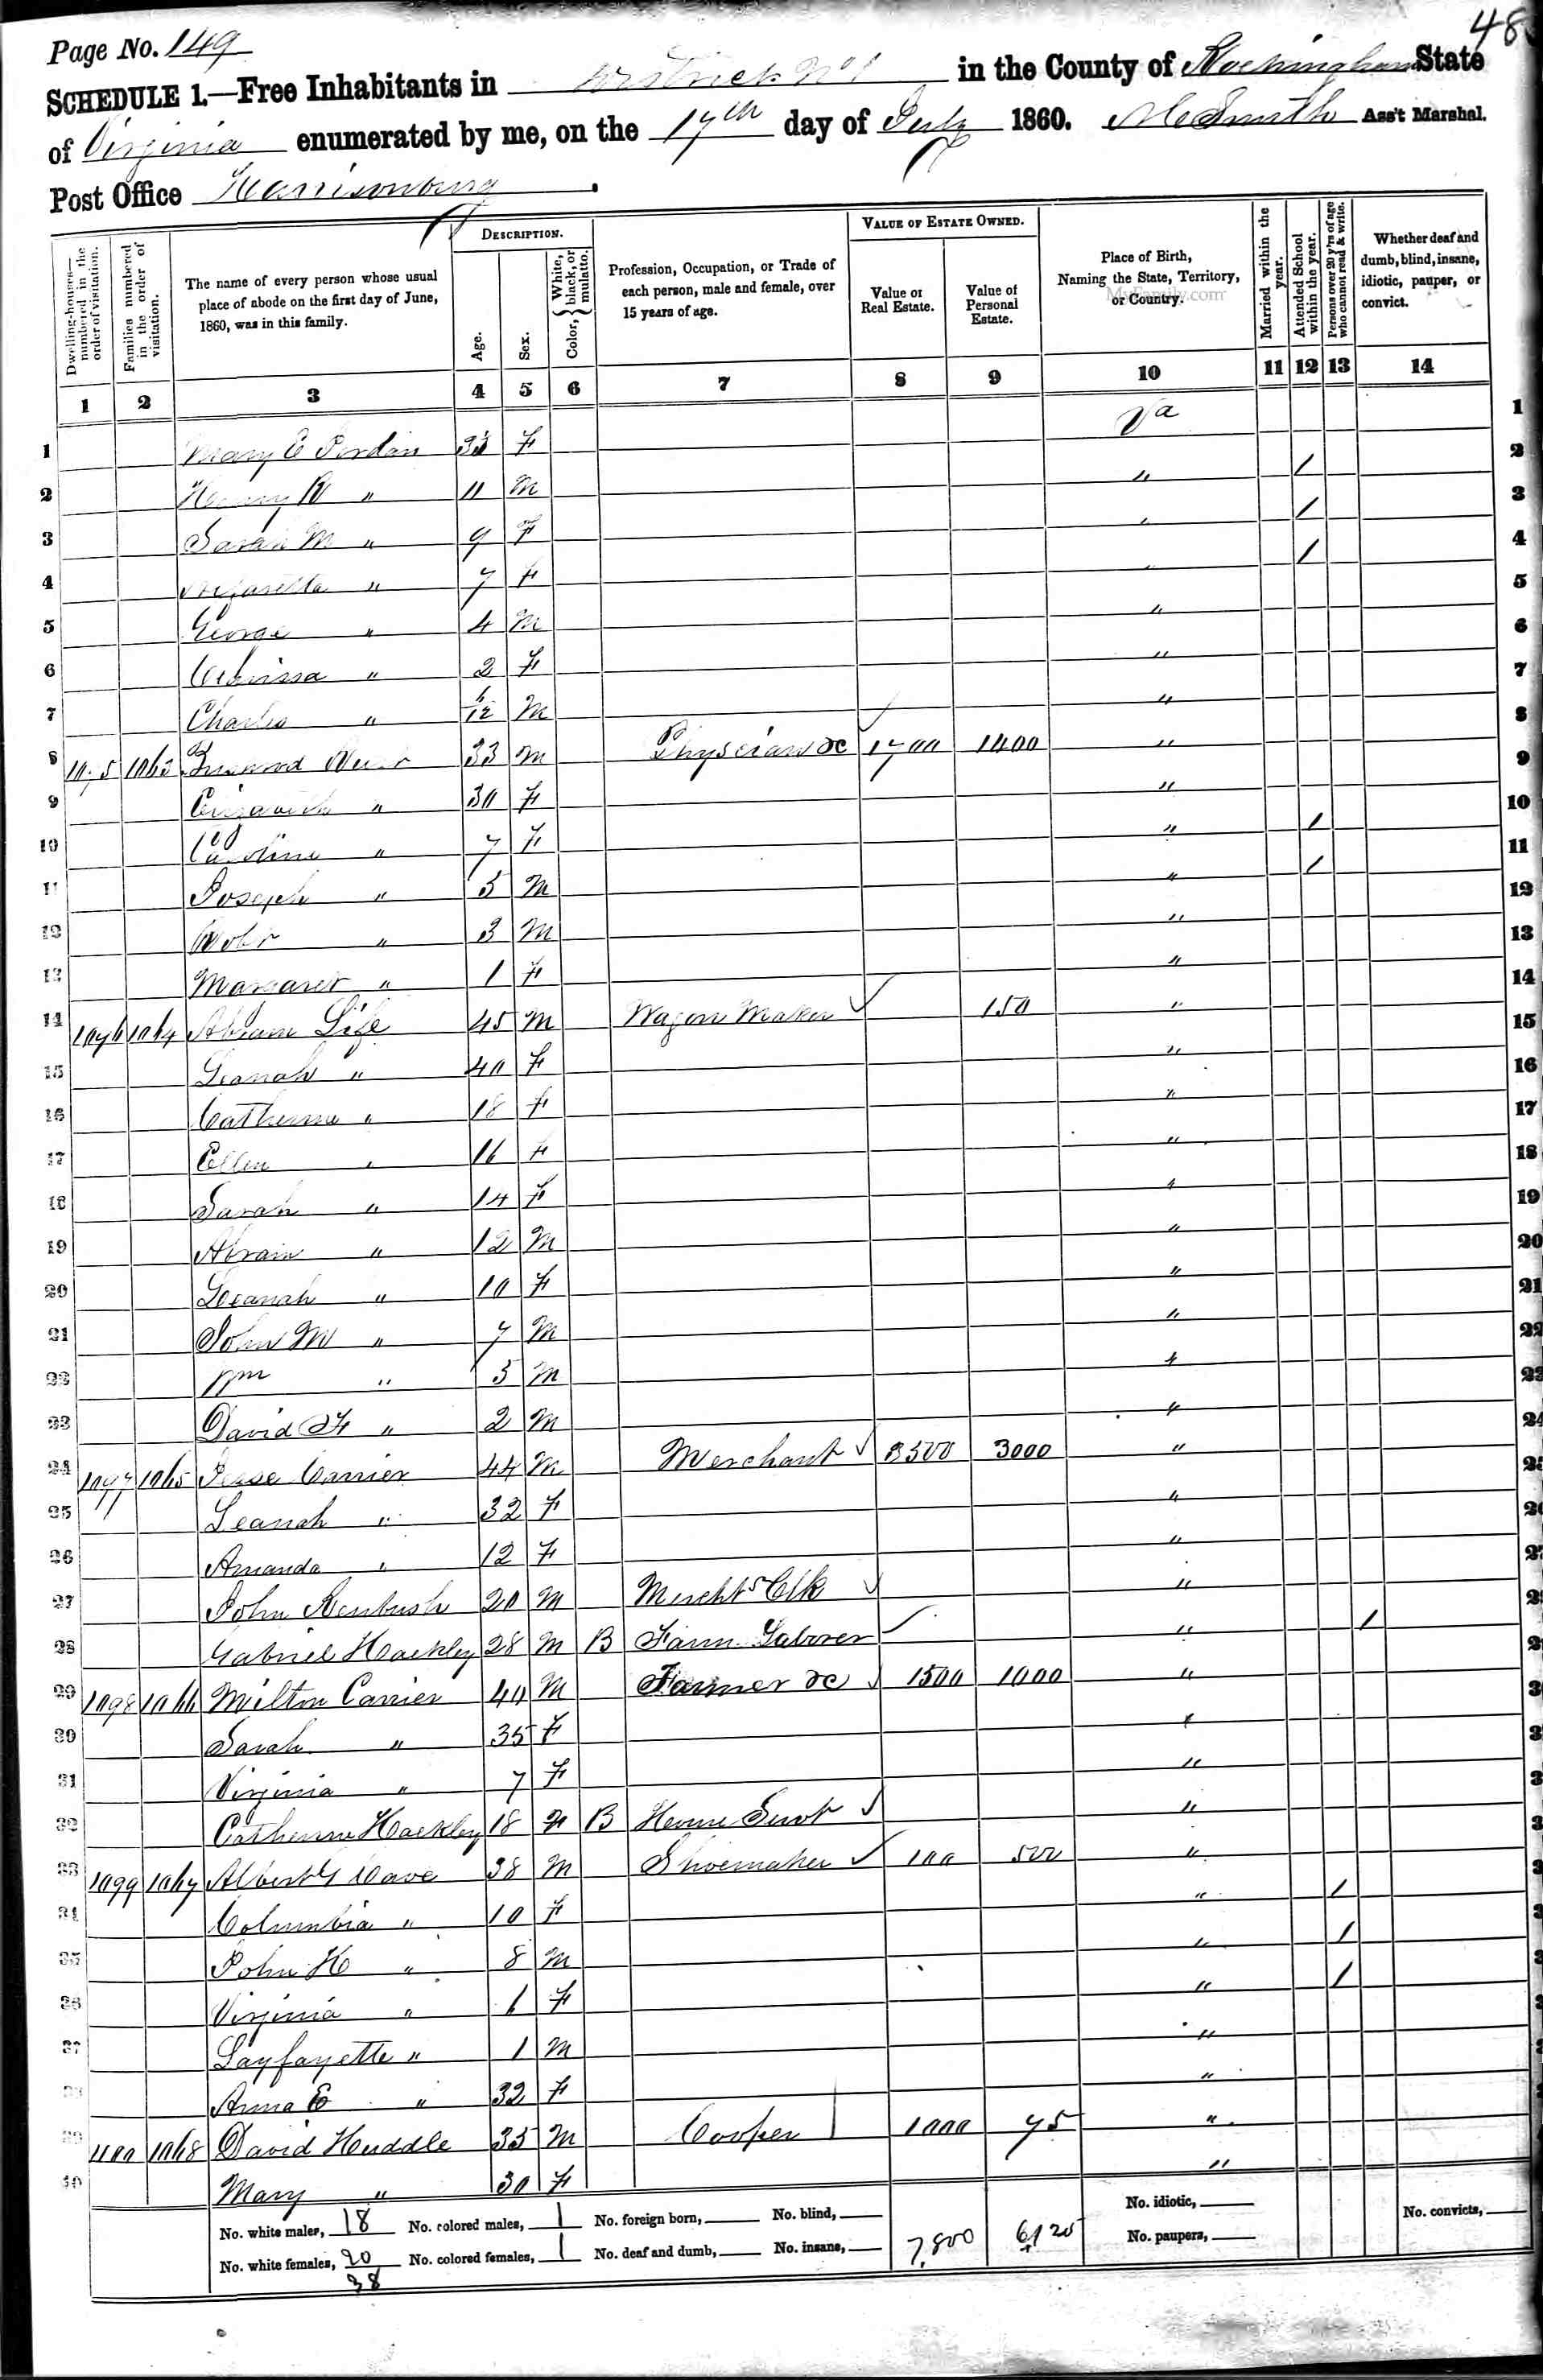 Page No. 149
48
SCHEDULE 1.—Free Inhabitants in District No 1 in the County of Rockingham State
of Virginia enumerated by me, on the 17th day of July 1860. Smith Ass't Marshal.
Post Office Harrisonburg.
Dwelling-houses—numbered in the order of visitation.
Families numbered in the order of visitation.
The name of every person whose usual place of abode on the first day of June, 1860, was in this family.
DESCRIPTION.
Age.
Sex.
Color, White, black, or mulatto.
Profession, Occupation, or Trade of each person, male and female, over 15 years of age.
VALUE OF ESTATE OWNED.
Value of Real Estate.
Value of Personal Estate.
Place of Birth, Naming the State, Territory, or Country.
MyFamily.com
Married within the year.
Attended School within the year.
Persons over 20 y'rs of age who cannot read & write.
Whether deaf and dumb, blind, insane, idiotic, pauper, or convict.
1 2 3 4 5 6 7 8 9 10 11 12 13 14
1 Mary E Jordan 33 F Va 1
2 " 11 M " / 2
3 Sarah M " 9 F " / 3
4 " 7 F " / 4
5 George " 4 M " 5
6 " 2 F " 6
7 Charles " /12 M " 7
8 1063 33 M Physician &c 1700 1400 " 8
9 Elizabeth " 30 F " 9
10 Caroline " 7 F " / 10
11 Joseph " 5 M " / 11
12 Robt " 3 M " 12
13 Margaret " 1 F " 13
14 1096 1064 Abram Life 45 M Wagon Maker 150 " 14
15 Leanah " 40 F " 15
16 Catherine " 18 F " 16
17 Ellen " 16 F " 17
18 Sarah " 14 F " 18
19 Abram " 12 M " 19
20 Leanah " 10 F " 20
21 John W " 7 M " 21
22 Wm " 5 M " 22
23 David F " 2 M " 23
24 1097 1065 Jesse Carrier 44 M Merchant 3500 3000 " 24
25 Leanah " 32 F " 25
26 Amanda " 12 F "
27 John Renbush 20 M Merchts Clk "
28 Gabriel Hackley 28 M B Farm Laborer " /
29 1098 1066 Milton Carrier 40 M Farmer &c 1500 1000 "
30 Sarah " 35 F "
31 Virginia " 7 F "
32 Catherine Hackley 18 F B House Servt "
33 1099 1067 Albert G Cave 38 M Shoemaker 100 500 "
34 Columbia " 10 F " /
35 John H " 8 M " /
36 Virginia " 6 F " /
37 Layfayette " 1 M "
38 Anna E " 32 F "
39 1100 1068 David Huddle 35 M Cooper 1000 75 "
40 Mary " 30 F "
No. white males, 18 No. colored males, 1 No. foreign born, No. blind, No. idiotic, No. convicts,
No. white females, 20 No. colored females, 1 No. deaf and dumb, No. insane, 7,800 6125 No. paupers,
38